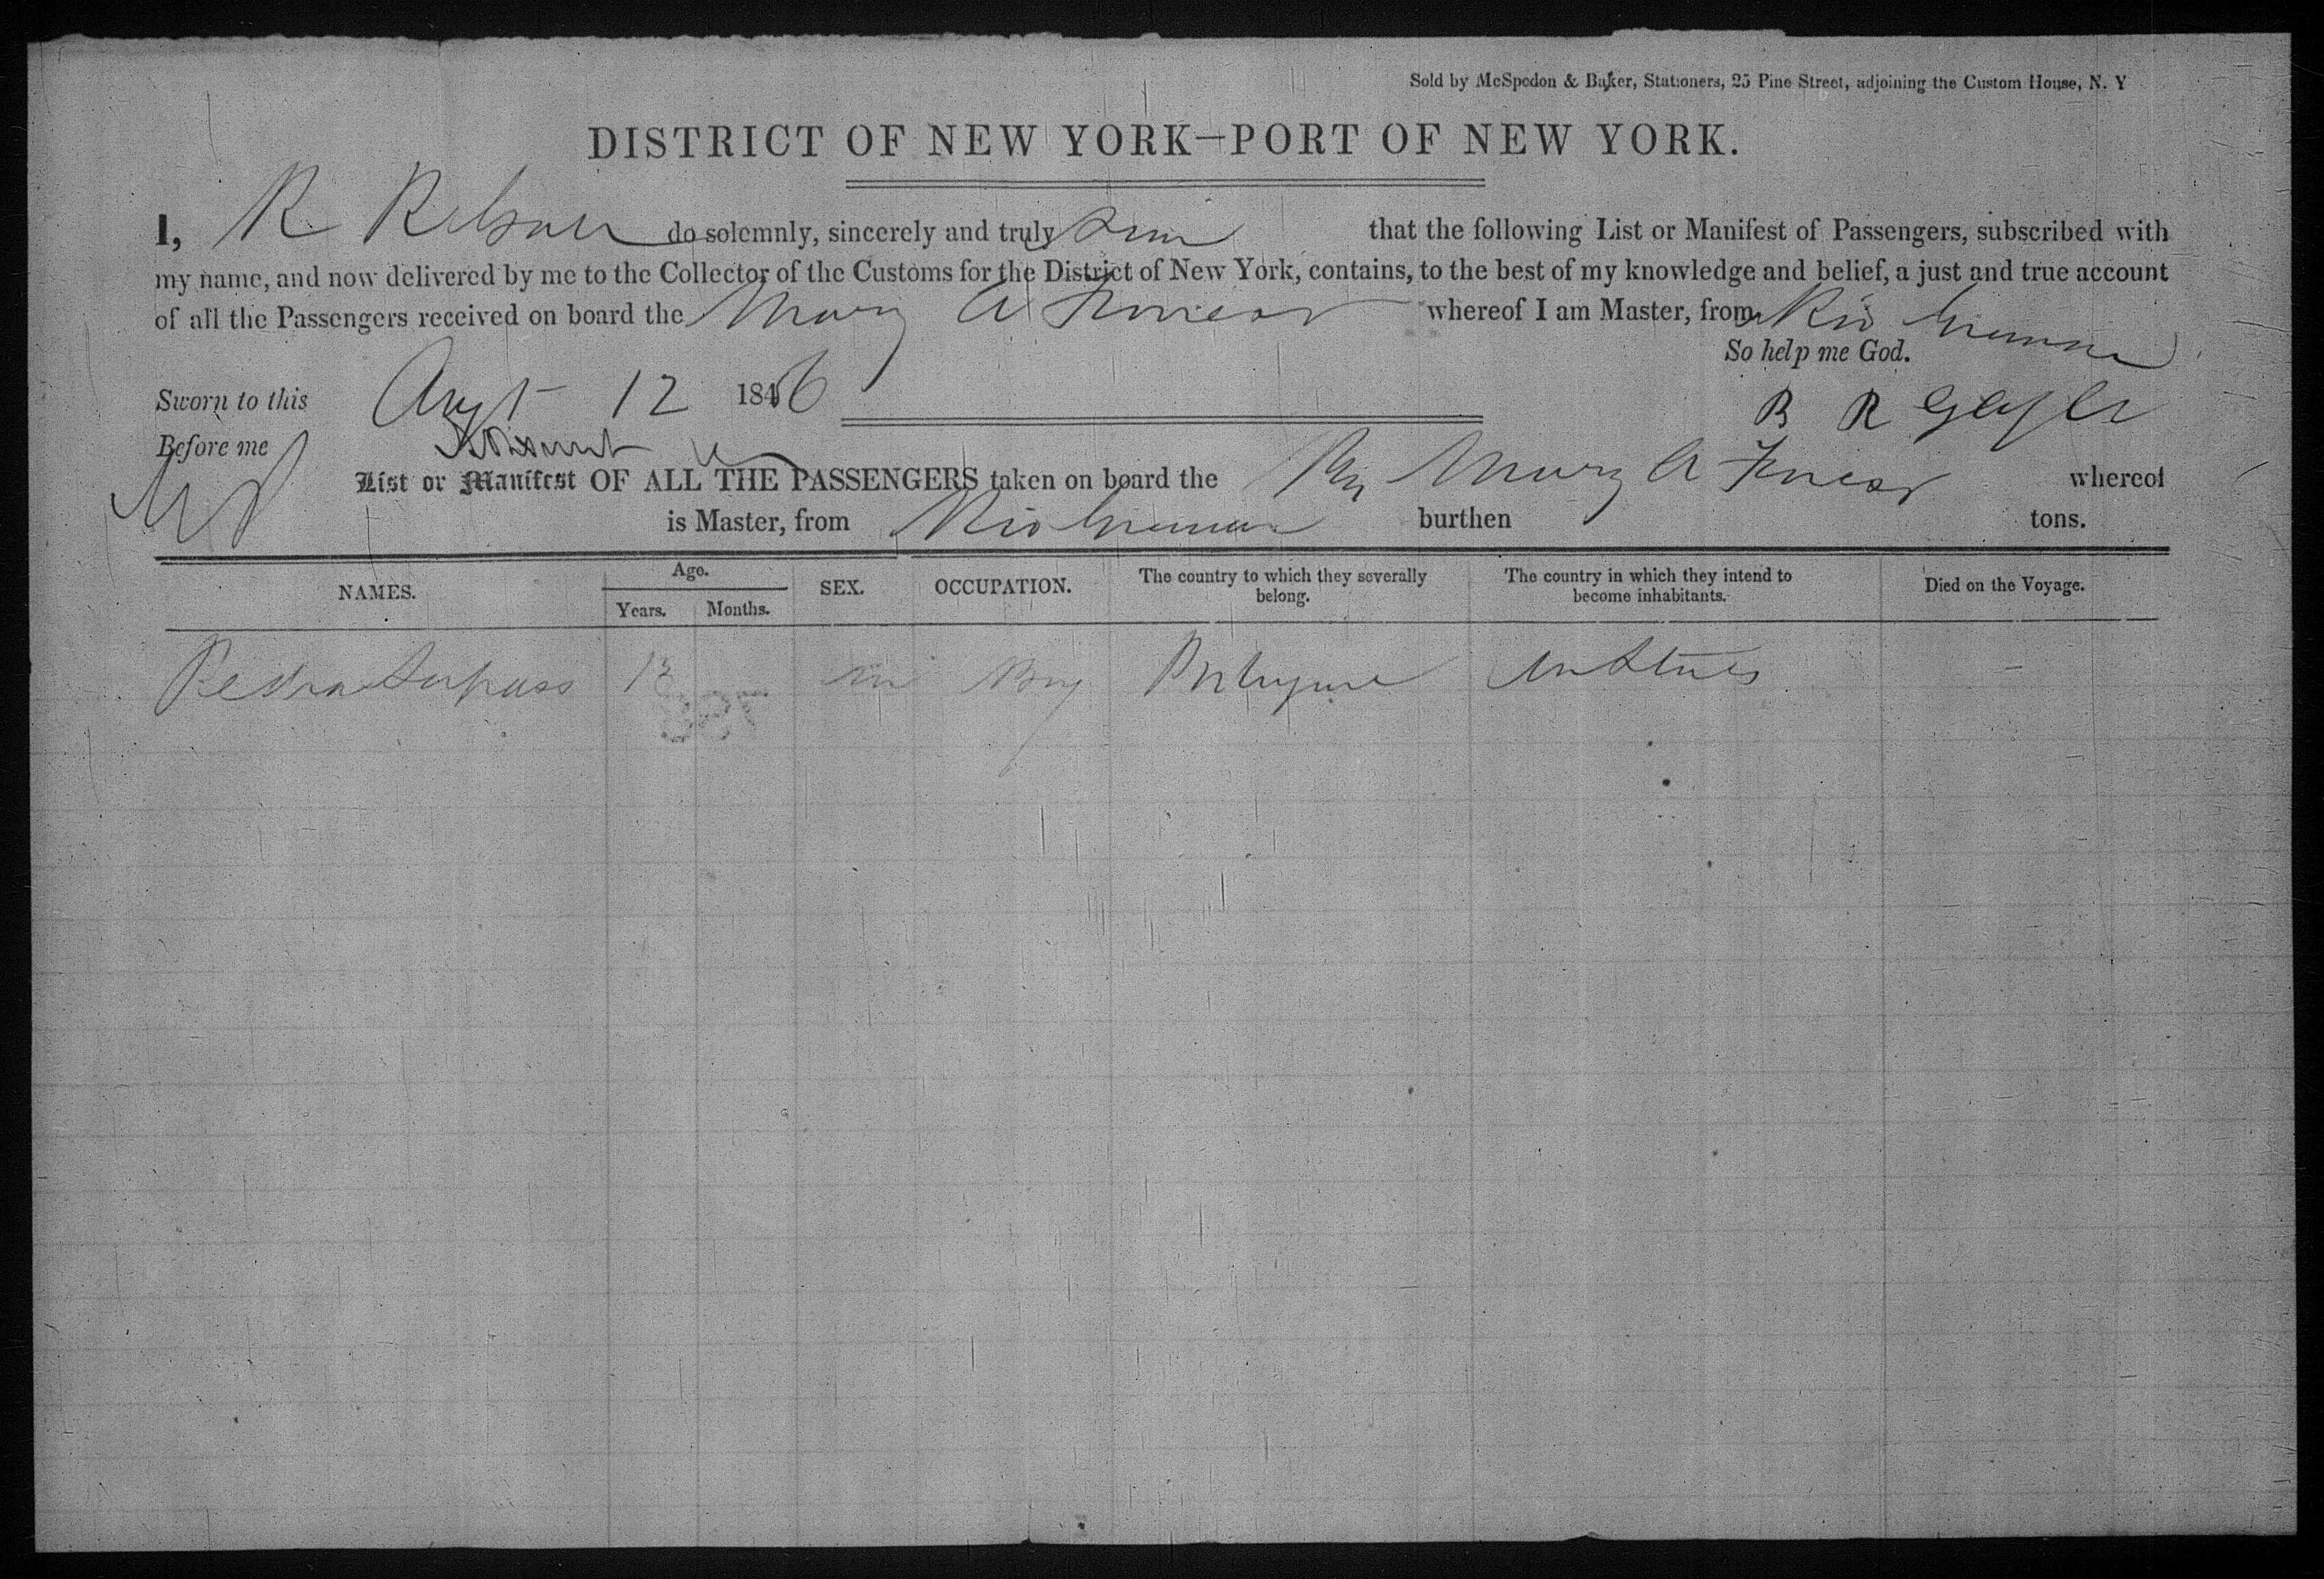 Sold by McSpedon & Baker, Stationers, 25 Pine Street, adjoining the Custom House, N. Y
DISTRICT OF NEW YORK—PORT OF NEW YORK.
I, R do solemnly, sincerely and truly that the following List or Manifest of Passengers, subscribed with
my name, and now delivered by me to the Collector of the Customs for the District of New York, contains, to the best of my knowledge and belief, a just and true account
of all the Passengers received on board the Mary A whereof I am Master, from Rio
So help me God.
Sworn to this Augt 12 1846
R R
Before me
List or Manifest OF ALL THE PASSENGERS taken on board the Mary A whereof
is Master, from Rio burthen tons.
NAMES. Age. Years. Months. SEX. OCCUPATION. The country to which they severally belong. The country in which they intend to become inhabitants. Died on the Voyage.
Pedra 13 m Boy Portuguese Un States –